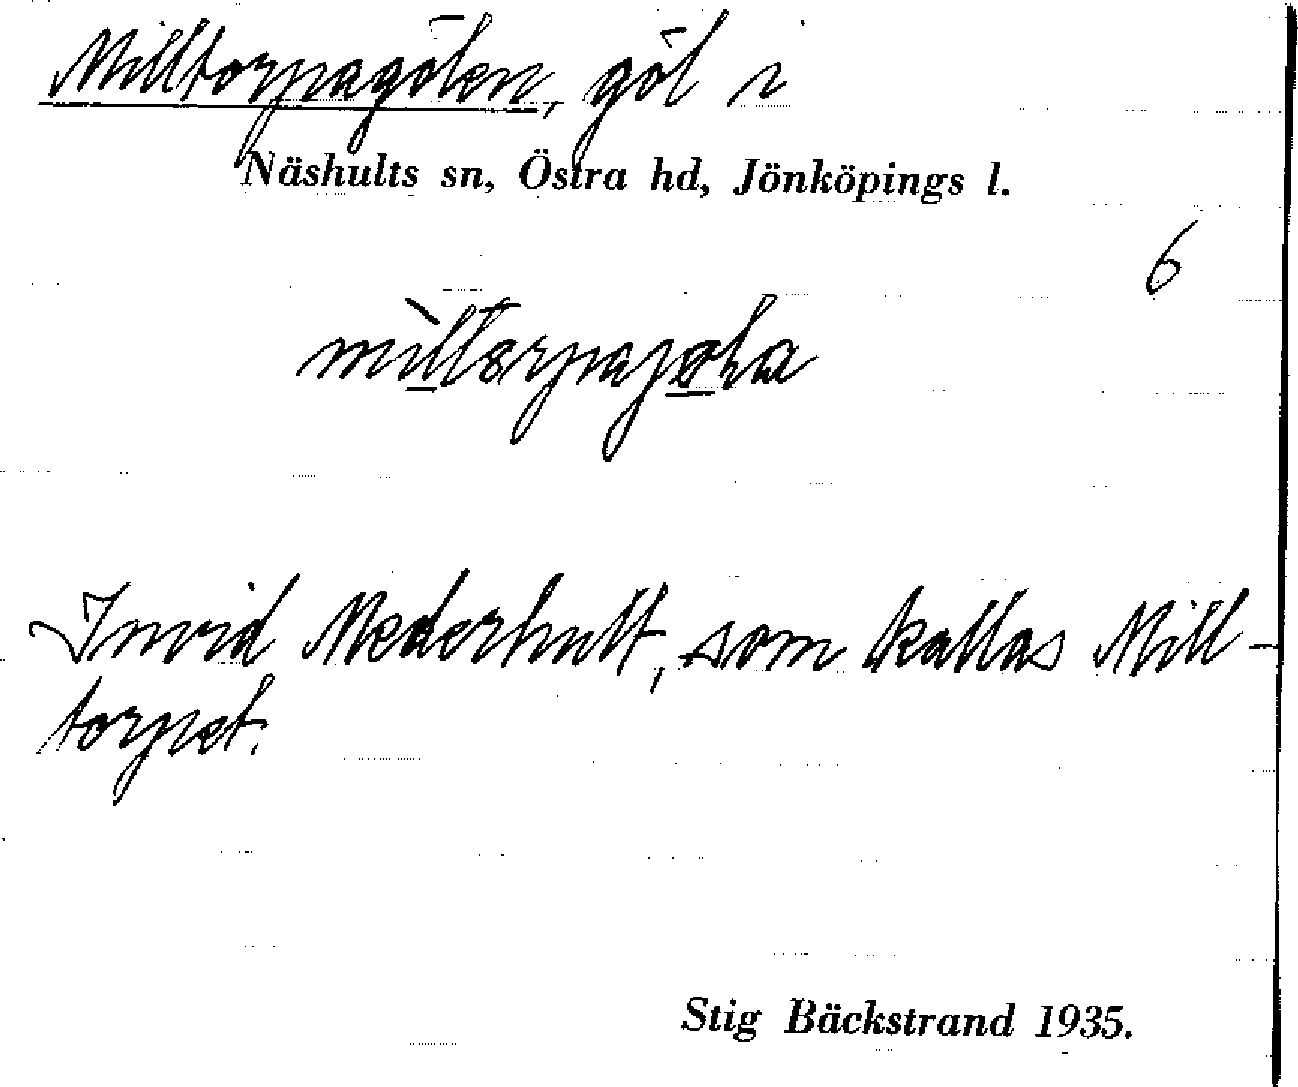 Milltorpagölen, göl i
Näshults sn, Östra hd, Jönköpings l.
6
Invid Nederhult, som kallas Mill-
torpet.
Stig Bäckstrand 1935.